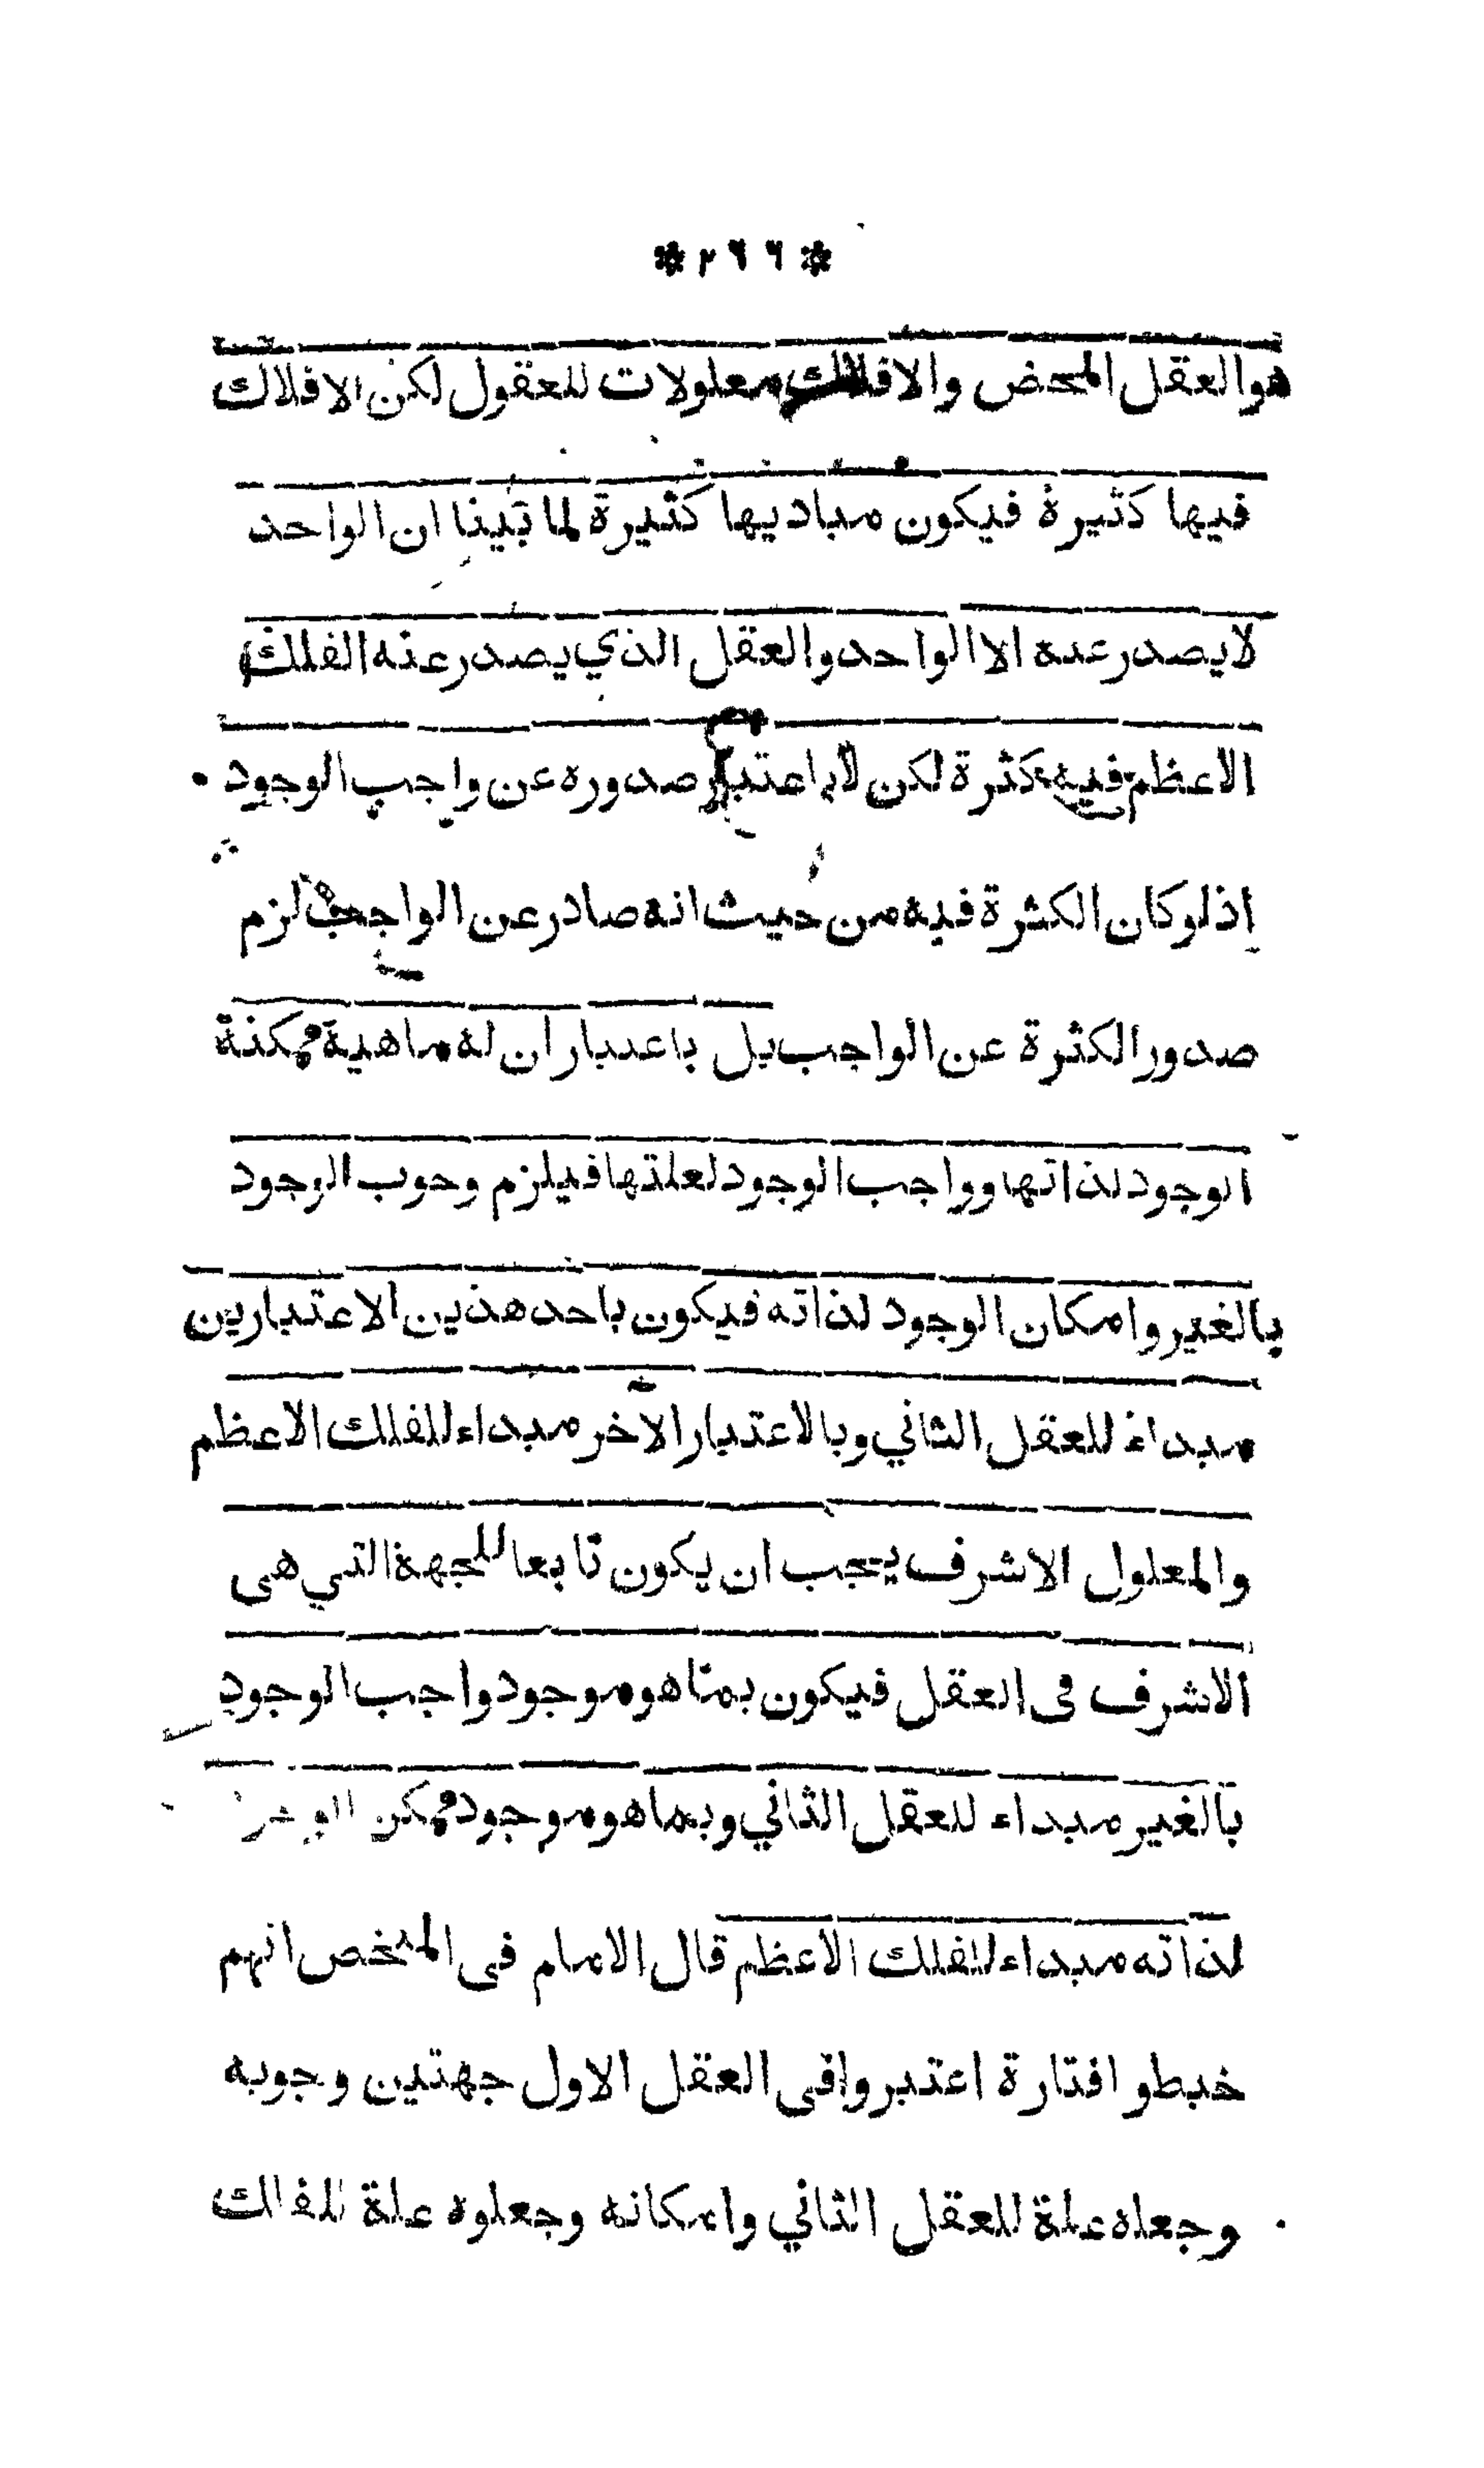 * ٢٦٦ *
هو العقل المحض والافلاك معلولات للعقول لكن الافلاك
فيها كثيرة فيكون مباديها كثيرة لما تبينا ان الواحد
لا يصدر عنه الا الواحد والعقل الذي يصدر عنه الفلك
الاعظم فيه كثرة لكن لا باعتبار صدوره عن واجب الوجود
إذ لو كان الكثرة فيه من حيث انه صادر عن الواجب لزم
صدور الكثرة عن الواجب بل باعتبار ان له ماهية ممكنة
الوجود لذاتها وواجب الوجود لعلتها فيلزم وجوب الوجود
بالغير وامكان الوجود لذاته فيكون باحد هذين الاعتبارين
مبداء للعقل الثاني وبالاعتبار الاخر مبداء للفلك الاعظم
والمعلول الاشرف يجب ان يكون تابعا للجهة التي هى
الاشرف فى العقل فيكون بما هو موجود واجب الوجود
بالغير مبداء للعقل الثاني وبما هو موجود ممكن
لذاته مبداء للفلك الاعظم قال الامام فى الملخص انهم
خبطوا فتارة اعتبروا فى العقل الاول جهتين وجوبه
وجعلاه علة للعقل الثاني وامكانه وجعلوه علة للفلك